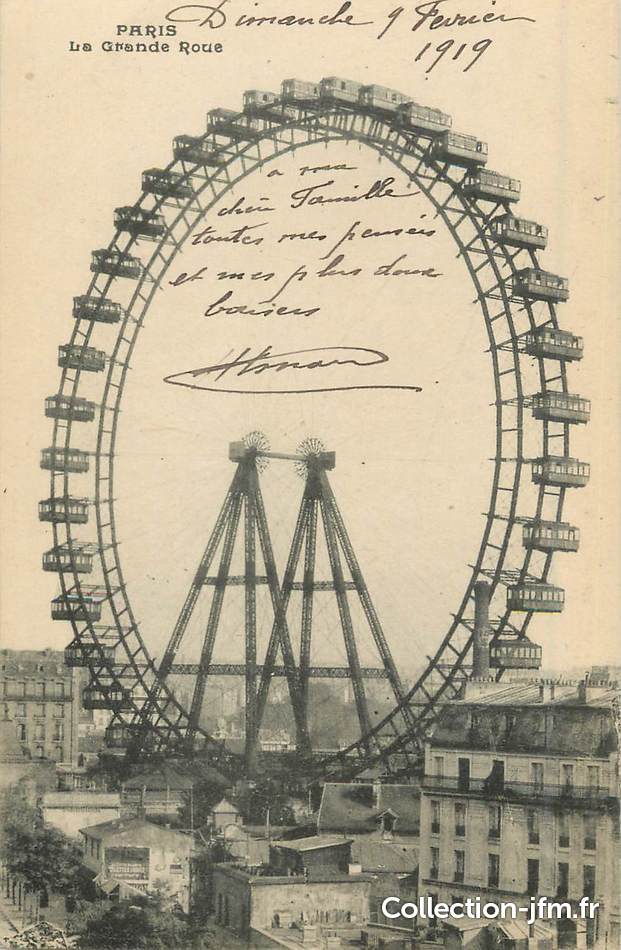 Dimanche 9 Fevrier
1919
PARIS
La Grande Roue
a ma
chère Famille
toutes mes pensées
et mes plus doux
baisers
Collection-jfm.fr